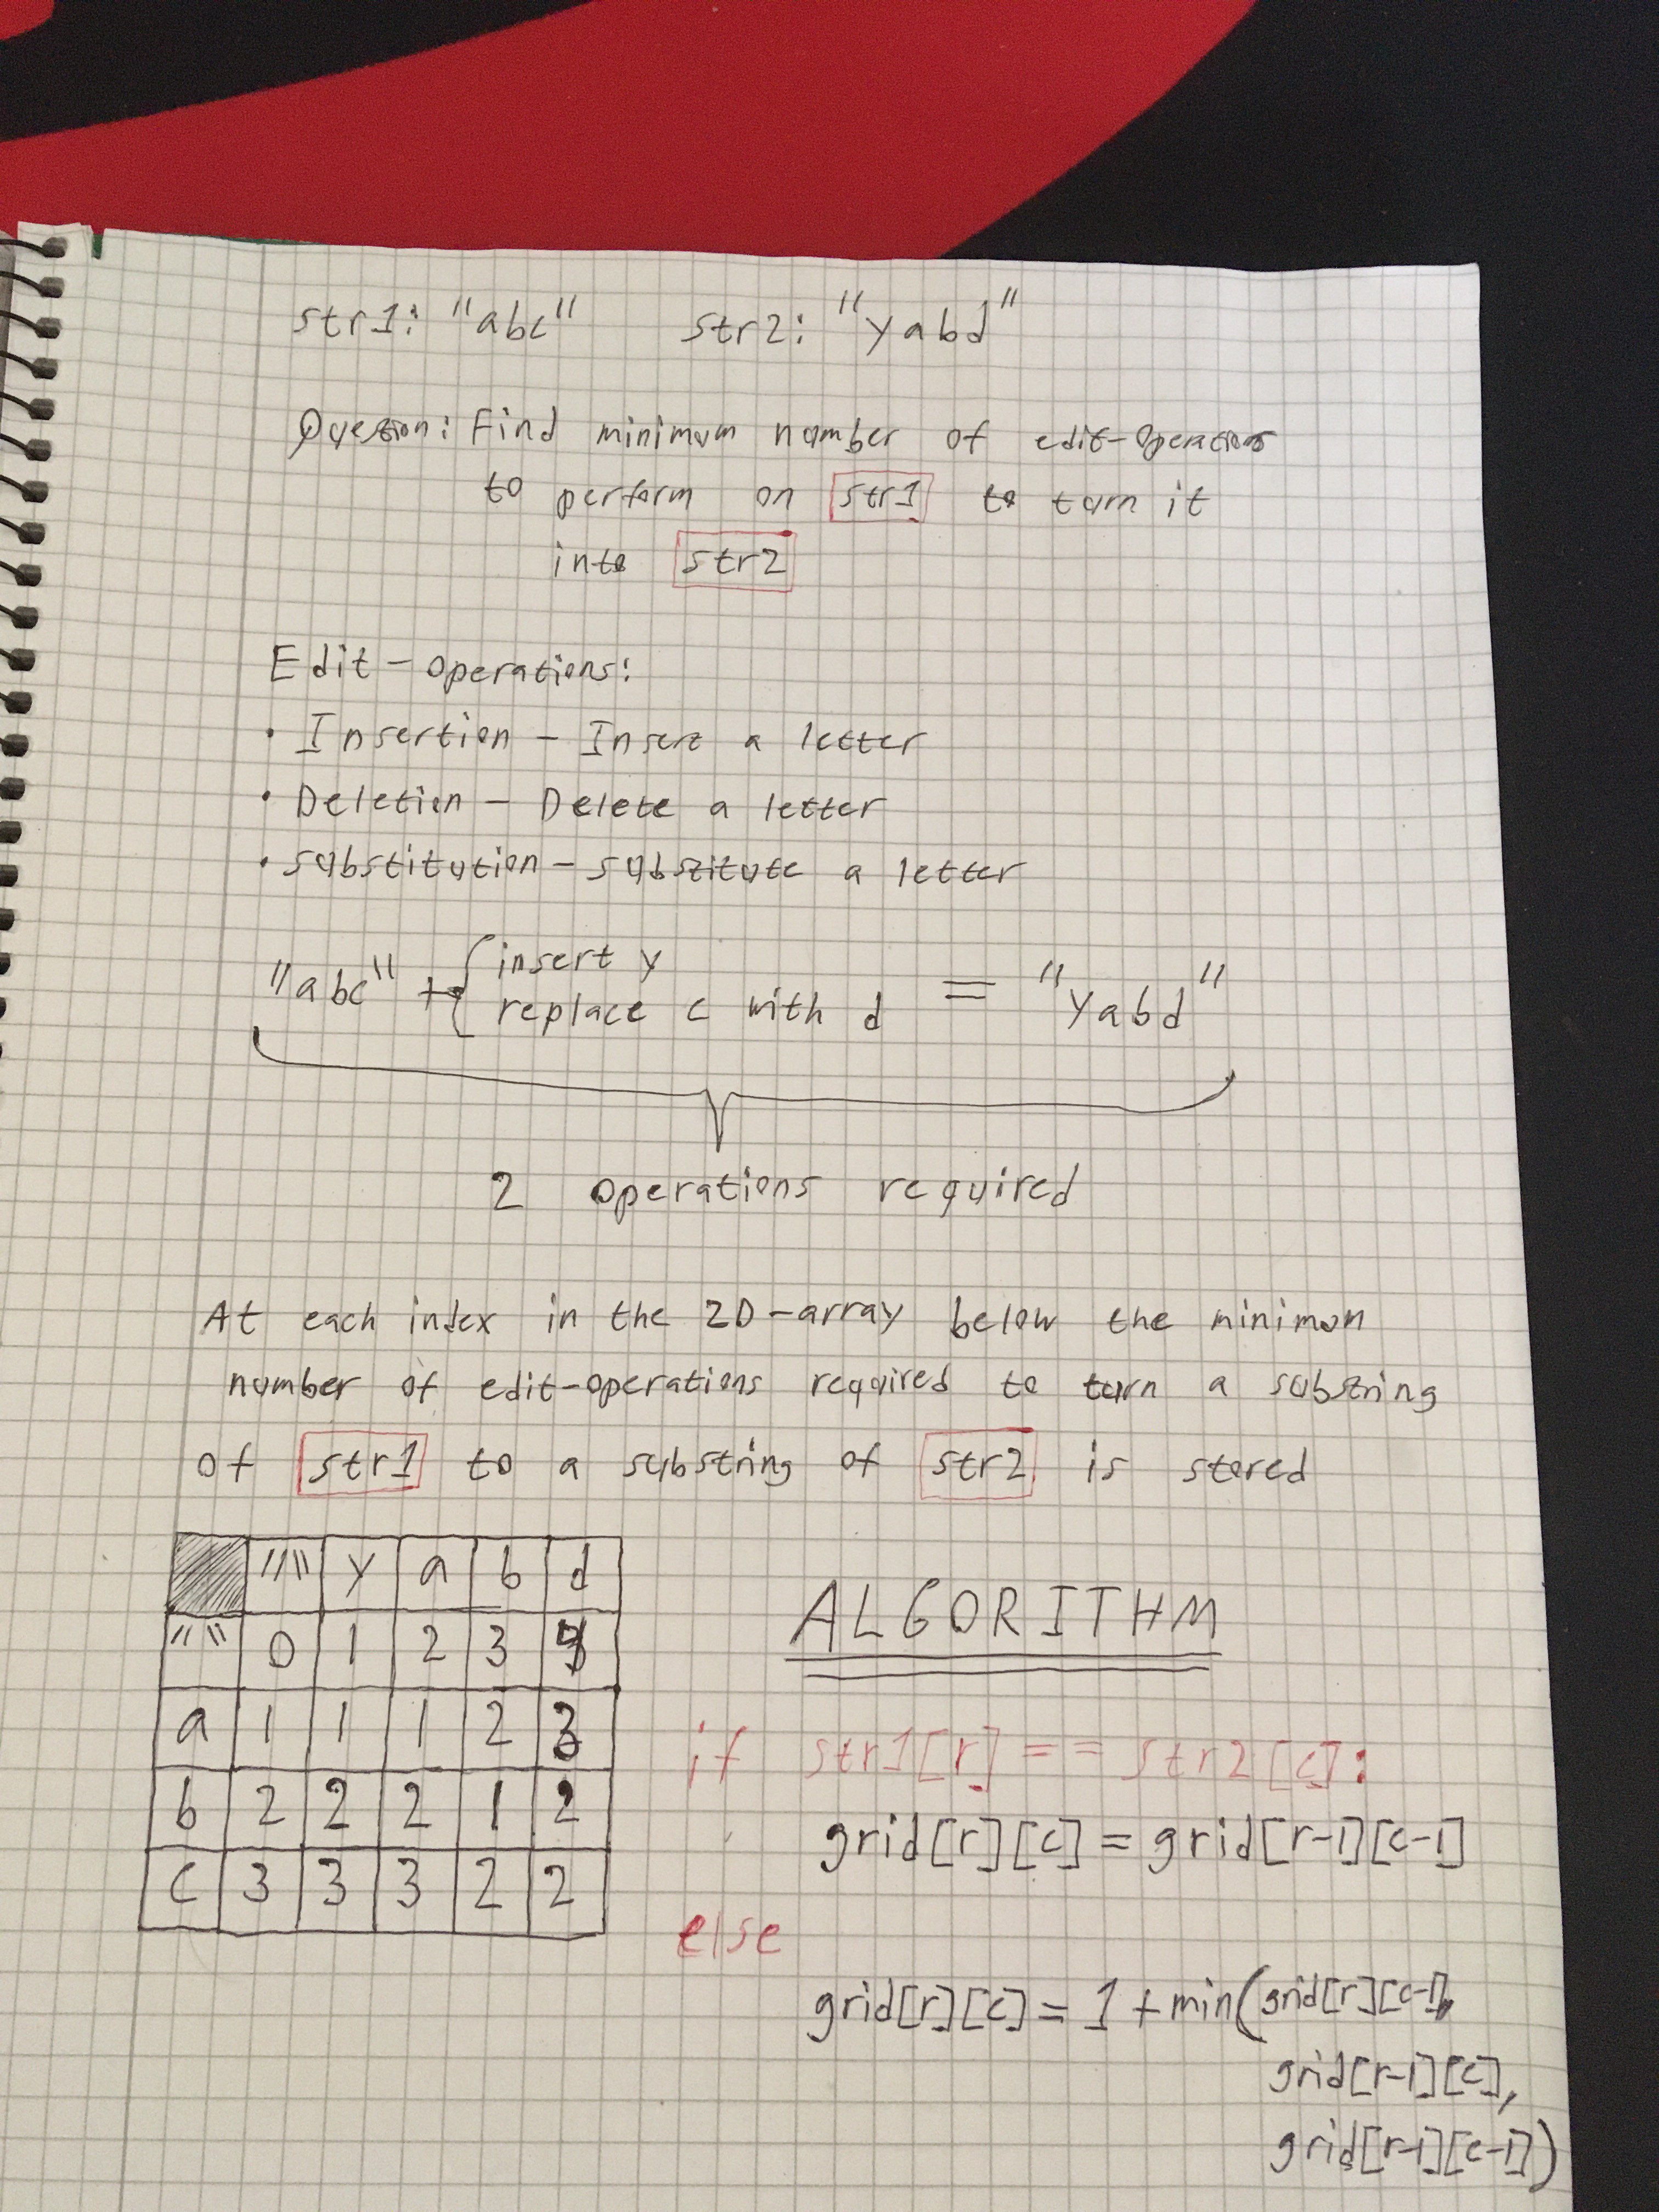 str1: "abc" str2: "yabd"
Question: Find minimum number of edit-operations
to perform on str1 to turn it
into str2
Edit-operations:
• Insertion - Insert a letter
• Deletion - Delete a letter
• Substitution - substitute a letter
"abc" + { insert y
replace c with d = "yabd"
2 operations required
At each index in the 2D-array below the minimum
number of edit-operations required to turn a substring
of str1 to a substring of str2 is stored
"" y a b d
"" 0 1 2 3 4
a 1 1 1 2 3
b 2 2 2 1 2
c 3 3 3 2 2
ALGORITHM
if str1[r] == str2[c]:
grid[r][c] = grid[r-1][c-1]
else
grid[r][c] = 1 + min(grid[r][c-1],
grid[r-1][c],
grid[r-1][c-1])